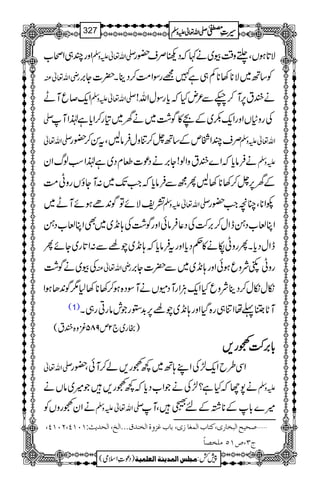 سیرتِ مصطفیٰ صلی اللہ تعالیٰ علیہ وسلم 327
لاتا ہوں، چلتے وقت بیوی نے کہا کہ دیکھنا صرف حضور صلی اللہ تعالیٰ علیہ وسلم اور چند ہی اصحاب
کو ساتھ میں لانا کھانا کم ہی ہے کہیں مجھے رسوا مت کر دینا۔ حضرت جابر رضی اللہ تعالیٰ عنہ
نے خندق پر آ کر چپکے سے عرض کیا کہ یا رسول اللہ! صلی اللہ تعالیٰ علیہ وسلم ایک صاع آٹے
کی روٹیاں اور ایک بکری کے بچے کا گوشت میں نے گھر میں تیار کرایا ہے لہٰذا آپ صلی اللہ تعالیٰ
علیہ وسلم صرف چند اشخاص کے ساتھ چل کر تناول فرمالیں، یہ سن کر حضور صلی اللہ تعالیٰ علیہ وسلم
نے فرمایا کہ اے خندق والو! جابر نے دعوت طعام دی ہے لہٰذا سب لوگ ان
کے گھر پر چل کر کھانا کھالیں پھر مجھ سے فرمایا کہ جب تک میں نہ آجاؤں روٹی مت
پکوانا، چنانچہ جب حضور صلی اللہ تعالیٰ علیہ وسلم تشریف لائے تو گوندھے ہوئے آٹے میں
اپنا لعاب دہن ڈال کر برکت کی دعا فرمائی اور گوشت کی ہانڈی میں بھی اپنا لعاب دہن
ڈال دیا۔ پھر روٹی پکانے کا حکم دیا اور یہ فرمایا کہ ہانڈی چولھے سے نہ اتاری جائے پھر
روٹی پکنی شروع ہوئی اور ہانڈی میں سے حضرت جابر رضی اللہ تعالیٰ عنہ کی بیوی نے گوشت
نکال نکال کر دینا شروع کیا ایک ہزار آدمیوں نے آسودہ ہو کر کھانا کھالیا مگر گوندھا ہوا
آٹا جتنا پہلے تھا اتنا ہی رہ گیا اور ہانڈی چولھے پر بدستور جوش مارتی رہی۔(1)
(بخاری ج۲ ص۵۸۹ غزوہ خندق)
بابرکت کھجوریں
اسی طرح ایک لڑکی اپنے ہاتھ میں کچھ کھجوریں لے کر آئی حضور صلی اللہ تعالیٰ
علیہ وسلم نے پوچھا کہ کیا ہے؟ لڑکی نے جواب دیا کہ کچھ کھجوریں ہیں جو میری ماں نے
میرے باپ کے ناشتہ کے لئے بھیجی ہیں، آپ صلی اللہ تعالیٰ علیہ وسلم نے ان کھجوروں کو
صحیح البخاری، کتاب المغازی، باب غزوۃ الخندق...الخ، الحدیث:۴۱۰۱،۴۱۰۲،
ج۳،ص۵۱ ملخصاً
پیش کش: مجلس المدینۃ العلمیۃ (دعوت اسلامی)